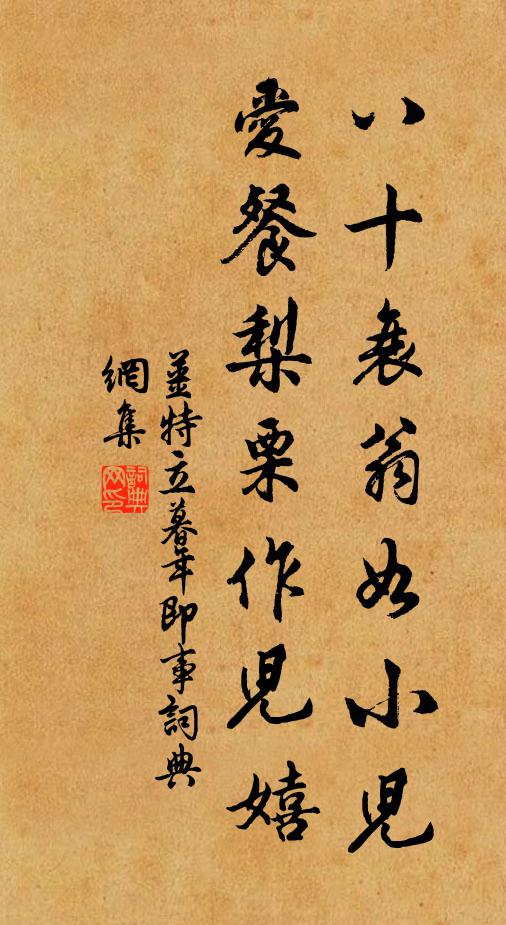 八十衰翁如小児
愛餐梨栗作児嬉
姜特立暮年即事詞典
網集
詞典
网印